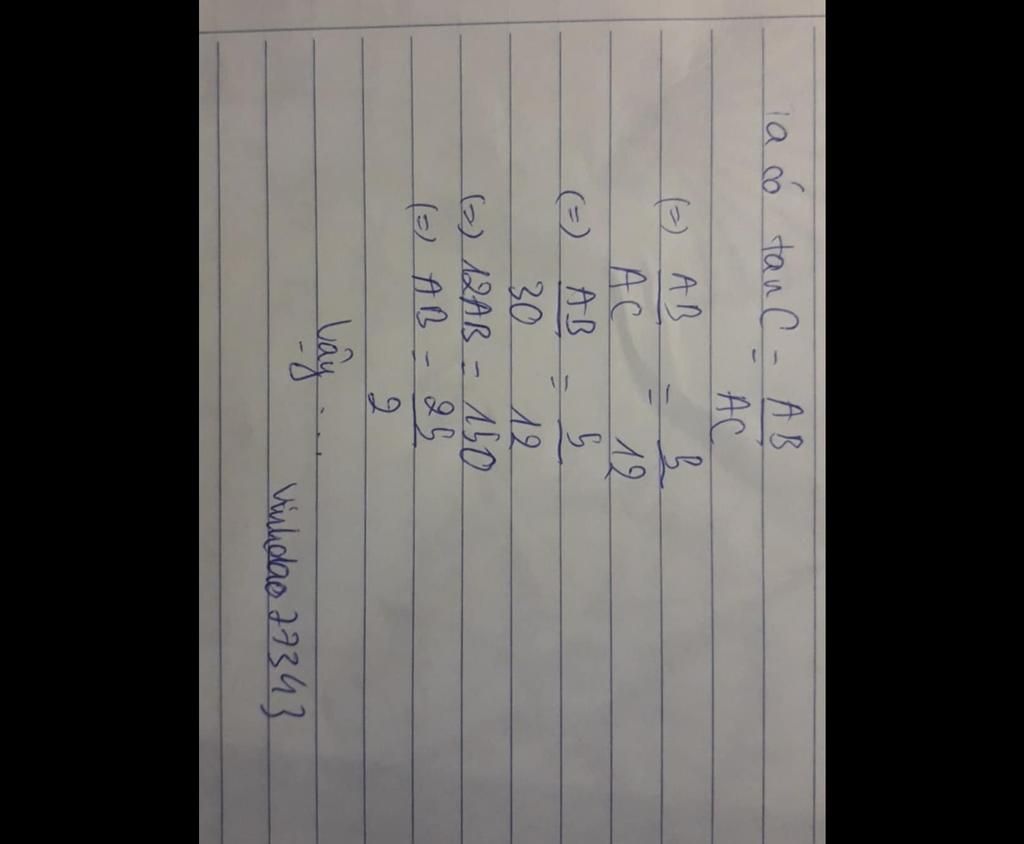 Ta có tan C = AB/AC
(=) AB/AC = 5/12
(=) AB/30 = 5/12
(=) 12AB = 150
(=) AB = 25/2
Vậy ...
Vinhdao27343